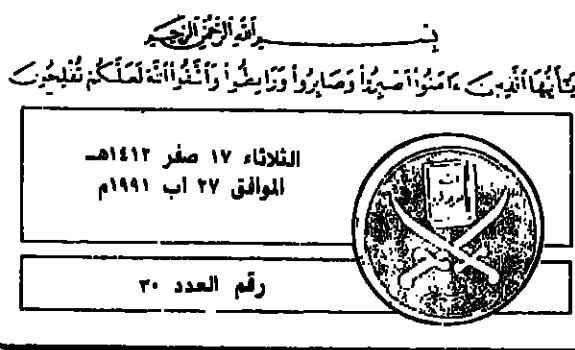 بسم الله الرحمن الرحيم
يَٰٓأَيُّهَا ٱلَّذِينَ ءَامَنُوا۟ ٱصْبِرُوا۟ وَصَابِرُوا۟ وَرَابِطُوا۟ وَٱتَّقُوا۟ ٱللَّهَ لَعَلَّكُمْ تُفْلِحُونَ
الثلاثاء ١٧ صفر ١٤١٢هـ
الموافق ٢٧ اب ١٩٩١م
رقم العدد ٣٠